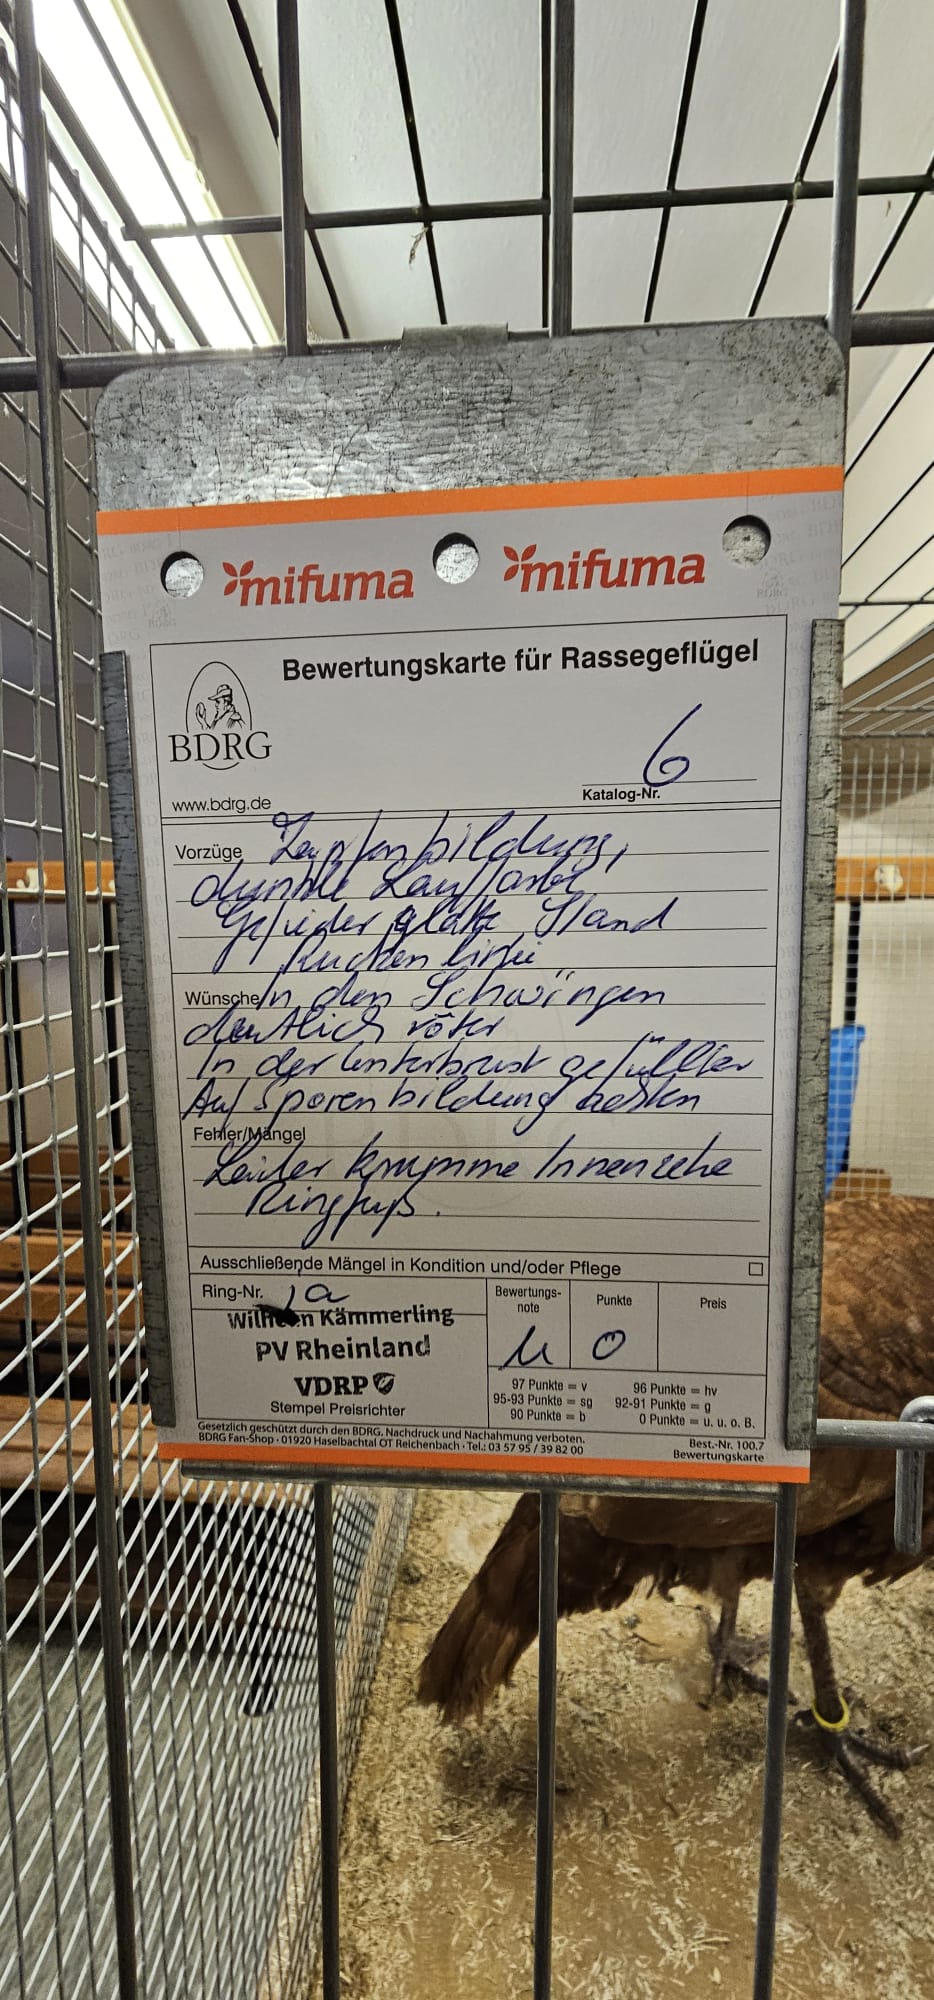 mifuma mifuma
Bewertungskarte für Rassegeflügel
BDRG
www.bdrg.de
6
Katalog-Nr.
Vorzüge Zapfenbildung,
dunkle Lauffarbe
Gefieder glatt Stand
Rückenlinie
Wünsche In den Schwingen
deutlich röter
In der Unterbrust gefüllter
Auf Sporenbildung achten
Fehler/Mängel
Leider krumme Innenzehe
Ringfuß.
Ausschließende Mängel in Kondition und/oder Pflege
Ring-Nr. ja
Wilhelm Kämmerling
PV Rheinland
VDRP
Stempel Preisrichter
Bewertungs-
note
u
Punkte
0
Preis
97 Punkte = v 96 Punkte = hv
95-93 Punkte = sg 92-91 Punkte = g
90 Punkte = b 0 Punkte = u. u. o. B.
Gesetzlich geschützt durch den BDRG. Nachdruck und Nachahmung verboten.
BDRG Fan-Shop · 01920 Haselbachtal OT Reichenbach · Tel.: 03 57 95 / 39 82 00
Best.-Nr. 100.7
Bewertungskarte